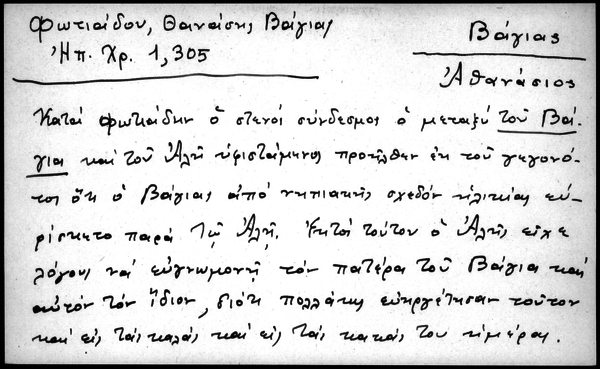 Φωτιάδου, Θανάσης Βάγιας
Ἠπ. Χρ. 1, 305
Βάγιας
Ἀθανάσιος
Κατά Φωτιάδην ὁ στενός σύνδεσμος ὁ μεταξύ τοῦ Βά-
για καί τοῦ Ἀλῆ ὑφιστάμενος προῆλθεν ἐκ τοῦ γεγονό-
τος ὅτι ὁ Βάγιας ἀπό νηπιακῆς σχεδόν ἡλικίας εὑ-
ρίσκετο παρά τῷ Ἀλῆ. Ἐκτός τούτου ὁ Ἀλῆς εἶχε
λόγους νά εὐγνωμονῇ τόν πατέρα τοῦ Βάγια καί
αὐτόν τόν ἴδιον, διότι πολλάκις εὐηργέτησαν τοῦτον
καί εἰς τάς καλάς καί εἰς τάς κακάς του ἡμέρας.